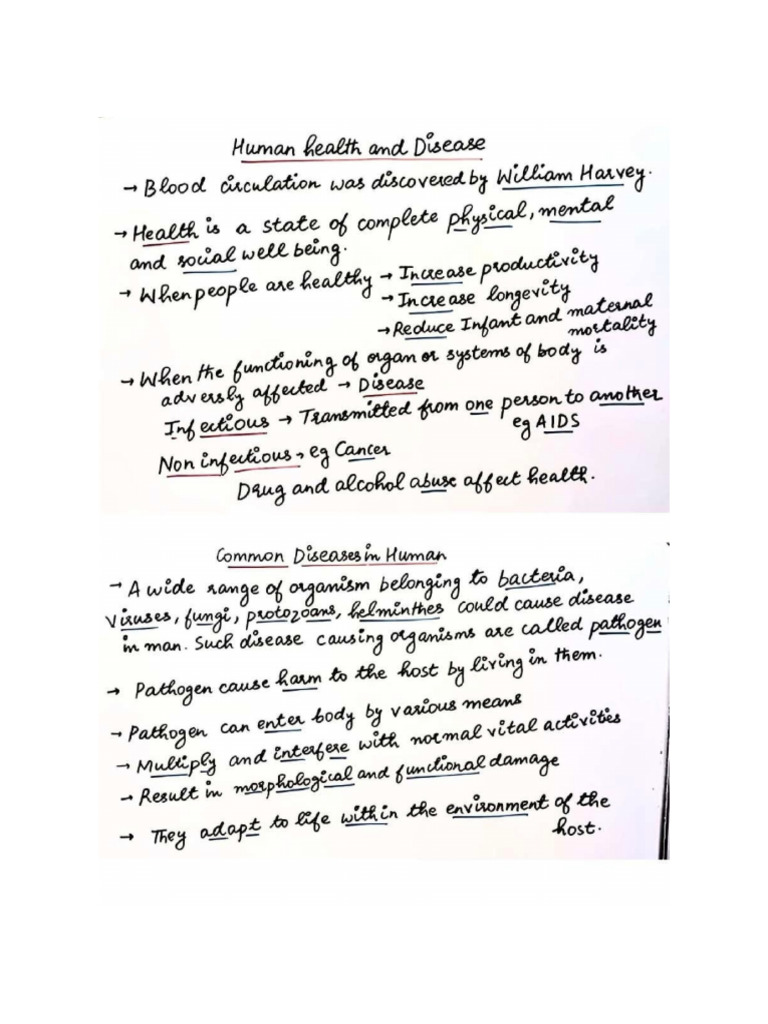 Human health and Disease
→ Blood circulation was discovered by William Harvey.
→ Health is a state of complete physical, mental
and social well being.
→ When people are healthy → Increase productivity
→ Increase longevity
→ Reduce Infant and maternal
mortality
→ When the functioning of organ or systems of body is
adversly affected → Disease
Infectious → Transmitted from one person to another
eg AIDS
Non infectious → eg Cancer
Drug and alcohol abuse affect health.
Common Diseases in Human
→ A wide range of organism belonging to bacteria,
viruses, fungi, protozoans, helminthes could cause disease
in man. Such disease causing organisms are called pathogen
→ Pathogen cause harm to the host by living in them.
→ Pathogen can enter body by various means
→ Multiply and interfere with normal vital activities
→ Result in morphological and functional damage
→ They adapt to life within the environment of the
host.